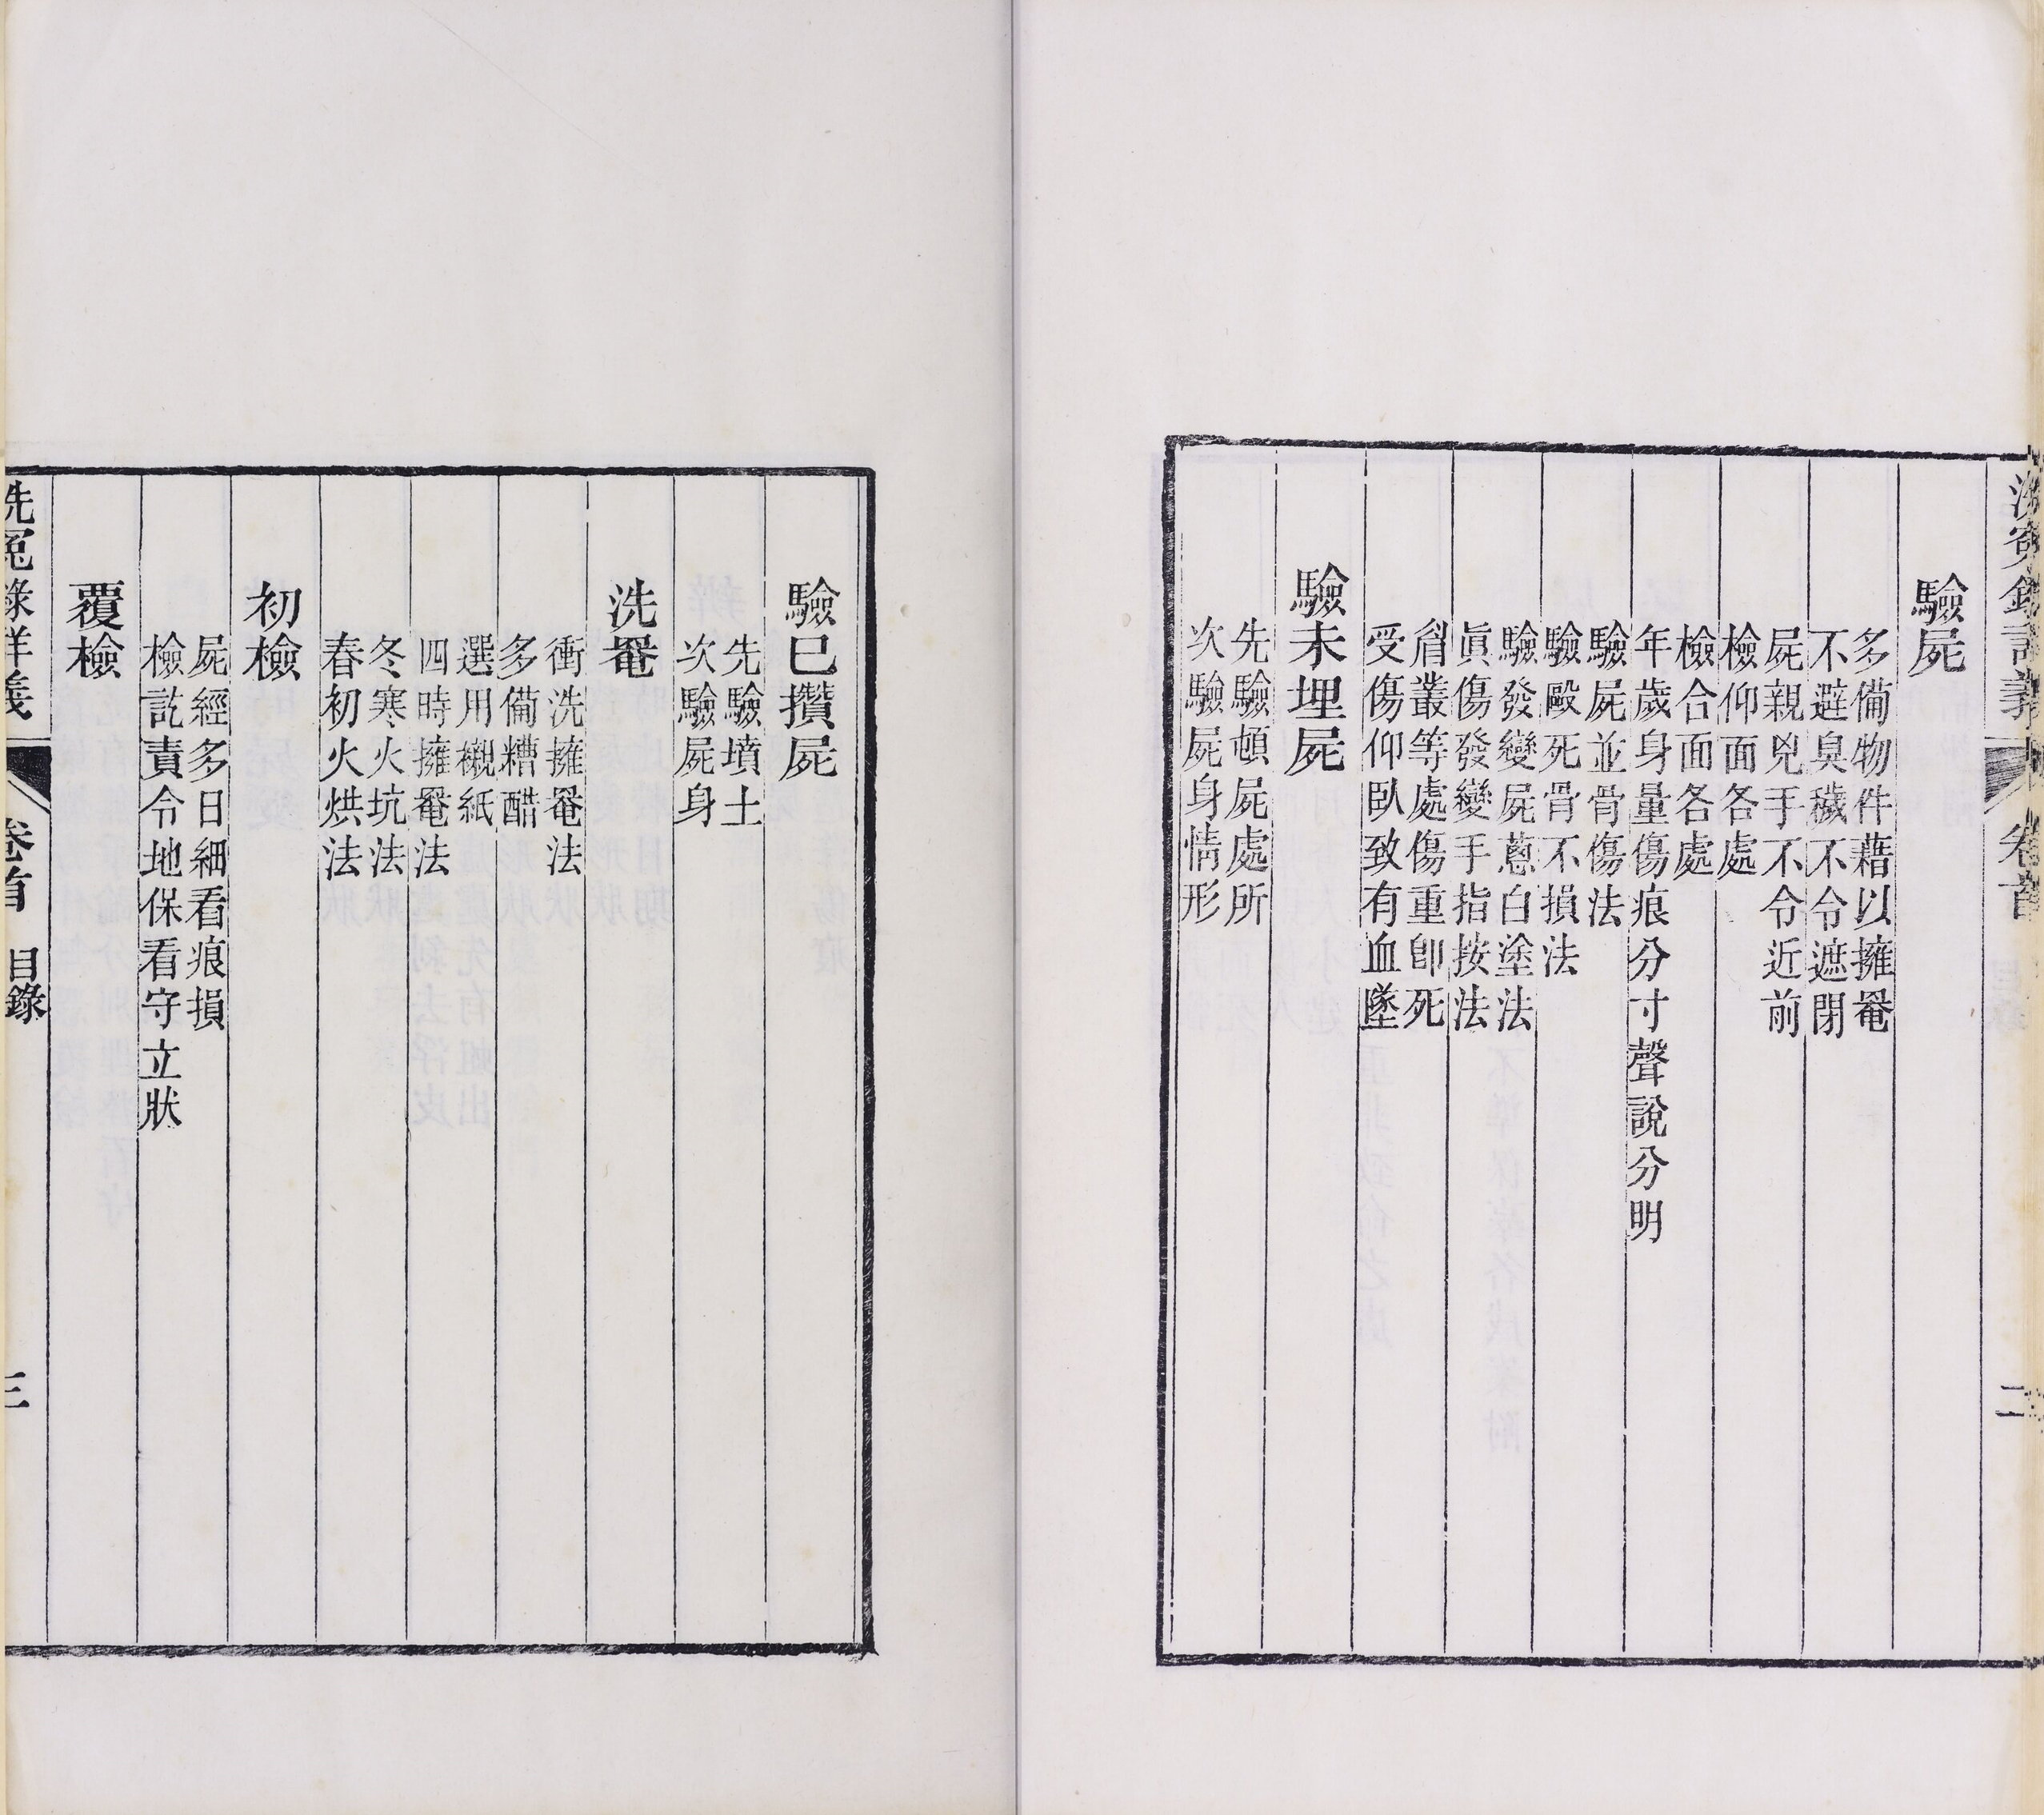 洗冤錄詳義 卷首 目錄 二
驗屍
多備物件藉以擁罨
不避臭穢不令遮閉
屍親兇手不令近前
檢仰面各處
檢合面各處
年歲身量傷痕分寸聲說分明
驗屍並骨傷法
驗毆死骨不損法
驗發變屍蔥白塗法
眞傷發變手指按法
肩叢等處傷重卽死
受傷仰臥致有血墜
驗未埋屍
先驗頓屍處所
次驗屍身情形
驗已攢屍
先驗墳土
次驗屍身
洗罨
衝洗擁罨法
多備糟醋
選用襯紙
四時擁罨法
冬寒火坑法
春初火烘法
初檢
屍經多日細看痕損
檢訖責令地保看守立狀
覆檢
洗冤錄詳義 卷首 目錄 三